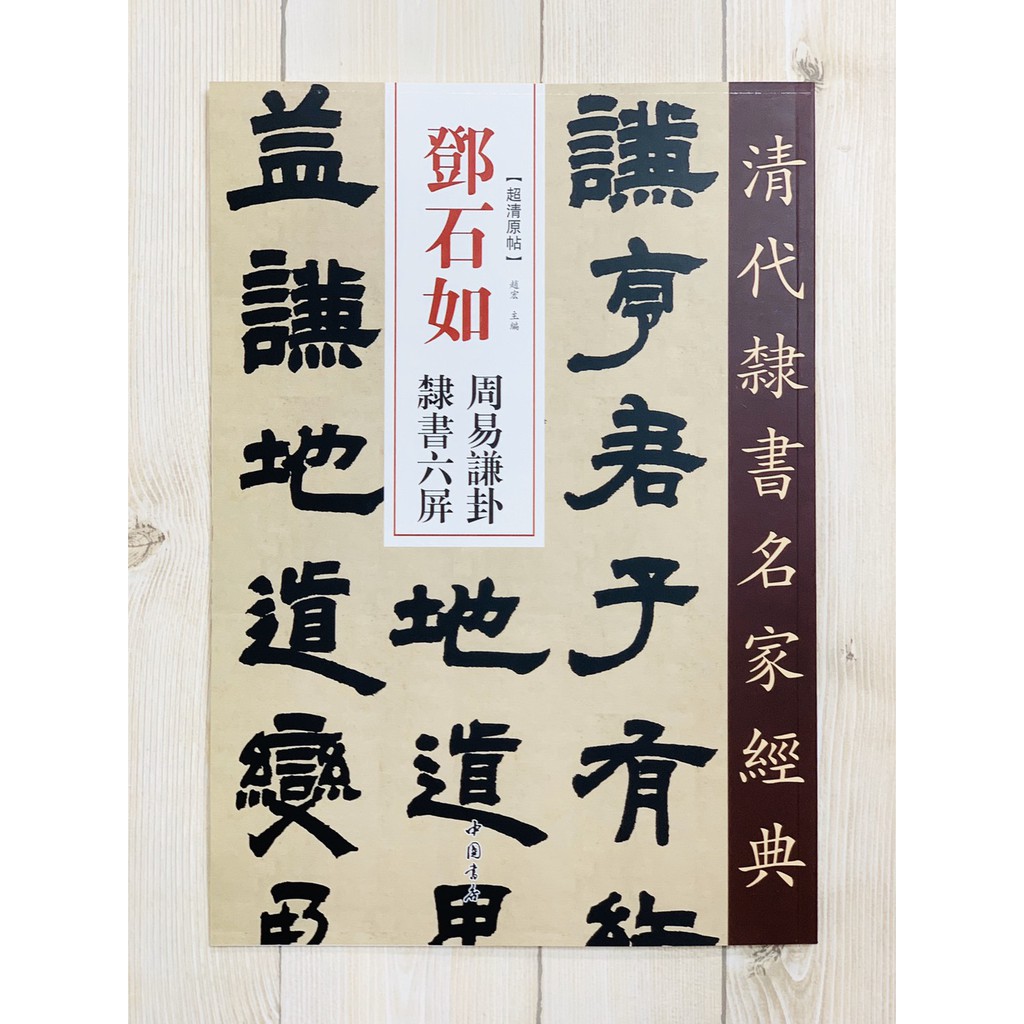 清代隸書名家經典
謙亨君子有終
【超清原帖】
趙宏 主編
鄧石如
周易謙卦
隸書六屏
地道卑
中国书店
益謙地道變